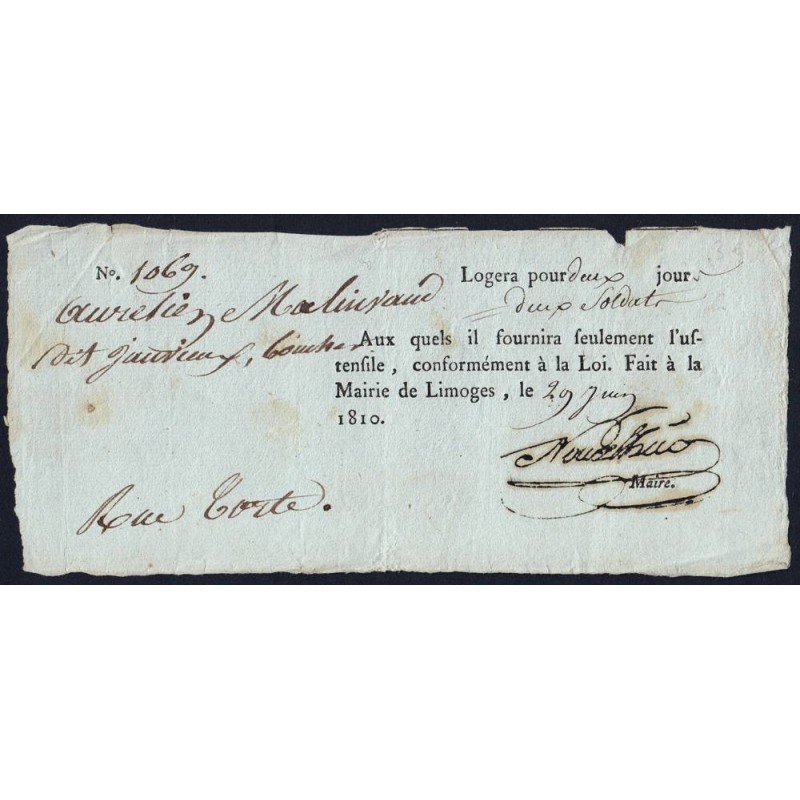 No. 1069.
Aurelien Malinvaud
dit janvieux, boucher
Rue Torte.
Logera pour deux jours
deux Soldats
Aux quels il fournira seulement l'uſ-
tenſile, conformément à la Loi. Fait à la
Mairie de Limoges, le 29 Juin
1810.
Maire.